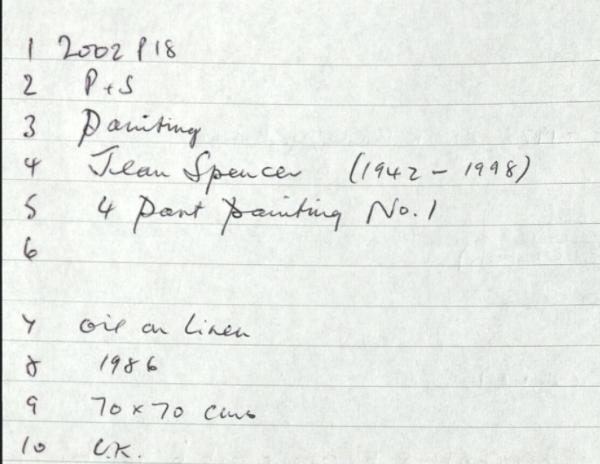 1 2002 P18
2 P+S
3 Painting
4 Jean Spencer (1942 - 1998)
5 4 Part painting No. 1
6
7 oil on linen
8 1986
9 70 x 70 cms
10 U.K.